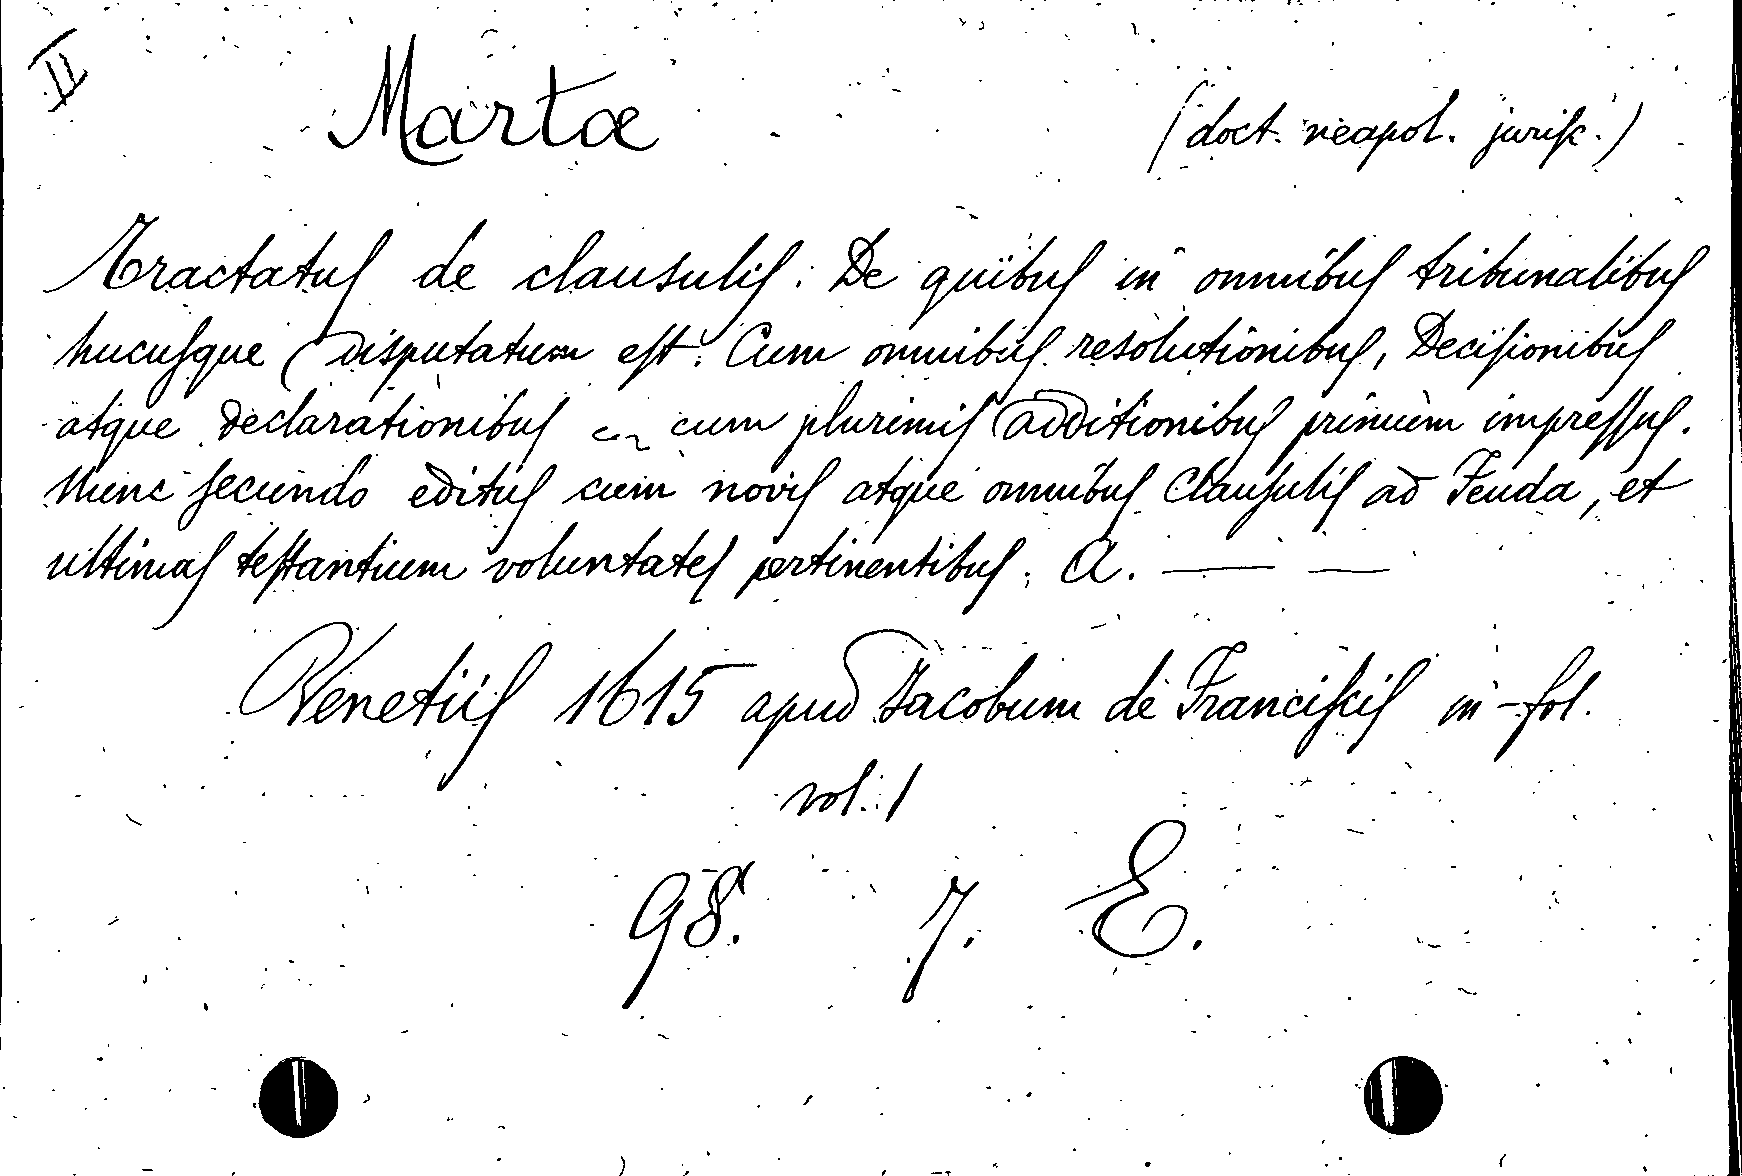 II
Martæ (doct. neapol. jurisc.)
Tractatus de clausulis: De quibus in omnibus tribunalibus
hucusque disputatum est. Cum omnibus resolutionibus, Decisionibus
atque declarationibus cum plurimis additionibus primum impressus.
Nunc secundo editus cum novis atque omnibus Clausulis ad Feuda, et
ultimas testantium voluntates pertinentibus. A. — —
Venetiis 1615 apud Jacobum de Franciscis in-fol.
vol. 1
98. 7. E.